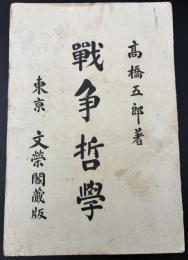 高橋五郎著
戰争哲學
東京 文榮閣藏版